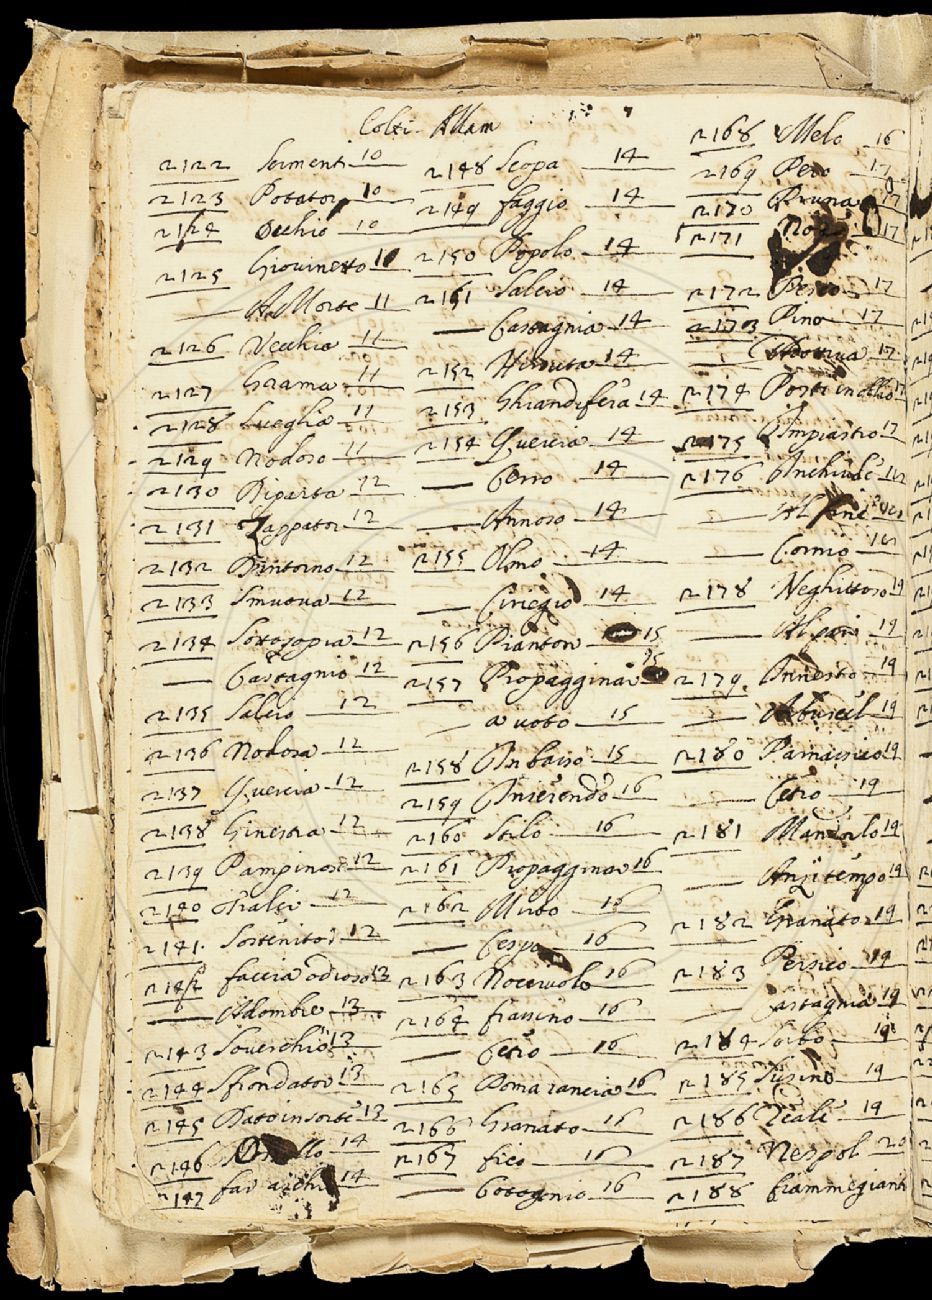 Colti. Allam
n122 Sermenti 10
n123 Potator 10
n124 Occhio 10
n125 Giovinetto 10
A Morte 11
n126 Vecchia 11
n127 Grama 11
n128 Sueglia 11
n129 Nodoso 11
n130 Riparta 12
n131 Zappator 12
n132 Dintorno 12
n133 Smuova 12
n134 Sottosopra 12
Castagnio 12
n135 Salcio 12
n136 Nodosa 12
n137 Quercia 12
n138 Ginestra 12
n139 Pampinosa 12
n140 Tralci 12
n141 Sostenitor 12
n142 faccia odioso 13
Adombre 13
n143 Soverchio 13
n144 Sfrondator 13
n145 Dato in sorte 13
n146 14
n147 14
n148 Scopa 14
n149 faggio 14
n150 Popolo 14
n151 Salcio 14
Castagnia 14
n152 Hirsuta 14
n153 Ghiandifera 14
n154 Quercia 14
Cerro 14
Annoso 14
n155 Olmo 14
Ciriegio 14
n156 Pianton 15
n157 Propaggina 15
a voto 15
n158 In basso 15
n159 Inserendo 16
n160 Stilo 16
n161 Propaggina 16
n162 Mirto 16
Cespo 16
n163 Nocciuolo 16
n164 frassino 16
Cetro 16
n165 Pomarancia 16
n166 Granato 16
n167 fico 16
Cotognio 16
n168 Melo 16
n169 Pero 17
n170 Pruna 17
n171 17
n172 Persico 17
n173 Pino 17
17
n174 17
n175 Impiastro 17
n176 Inchiude
Cornio
n178 Neghittoso 19
19
n179 Innesto 19
Arbuscel 19
n180 19
Cetro 19
n181 Mandorlo 19
Anzi tempo 19
n182 Granato 19
n183 Persico 19
Castagnia 19
n184 Sorbo 19
n185 Susino 19
n186 19
n187 Nespol 20
n188 fiammegiant